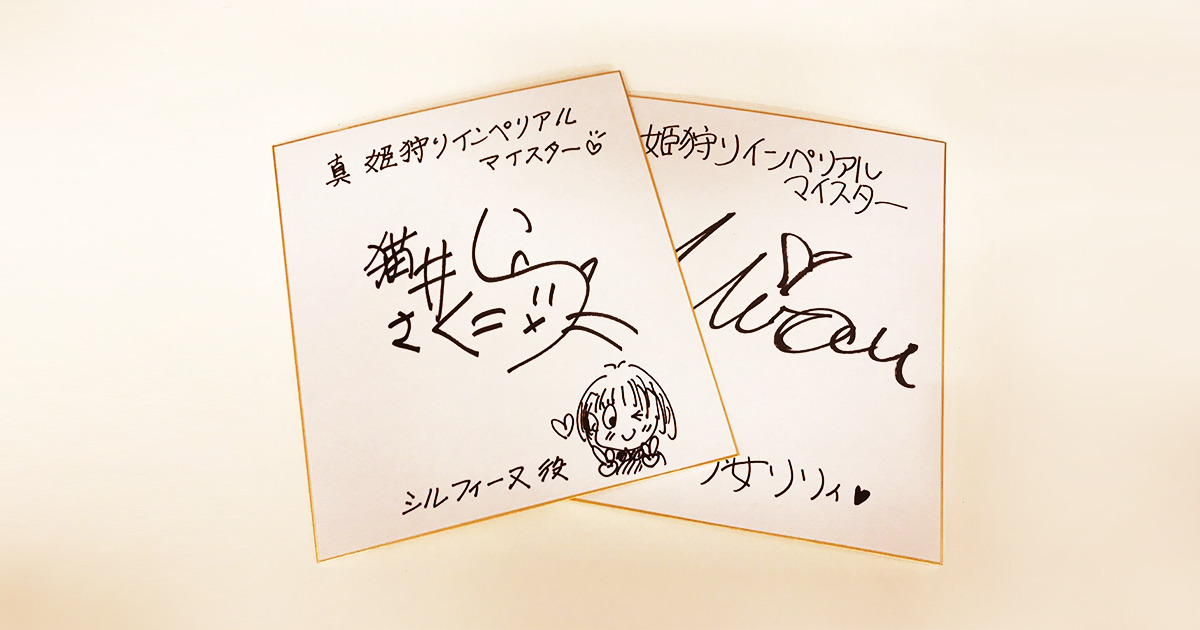 真 姫狩りインペリアル
マイスター♡
猫井
さくら
シルフィーヌ役
姫狩りインペリアル
マイスター
女リリィ♥